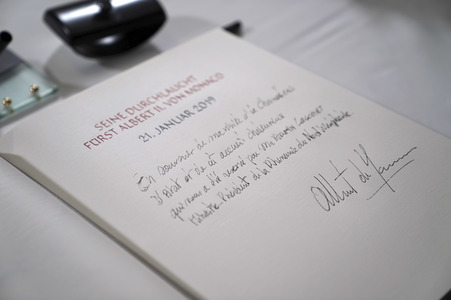 SEINE DURCHLAUCHT
FÜRST ALBERT II. VON MONACO
21. JANUAR 2019
En souvenir de ma visite à la Chancellerie
d'Etat et de cet accueil chaleureux
qui nous a été réservé par Mr Armin Laschet
Ministre-Président de la Rhénanie du Nord-Westphalie
Albert de